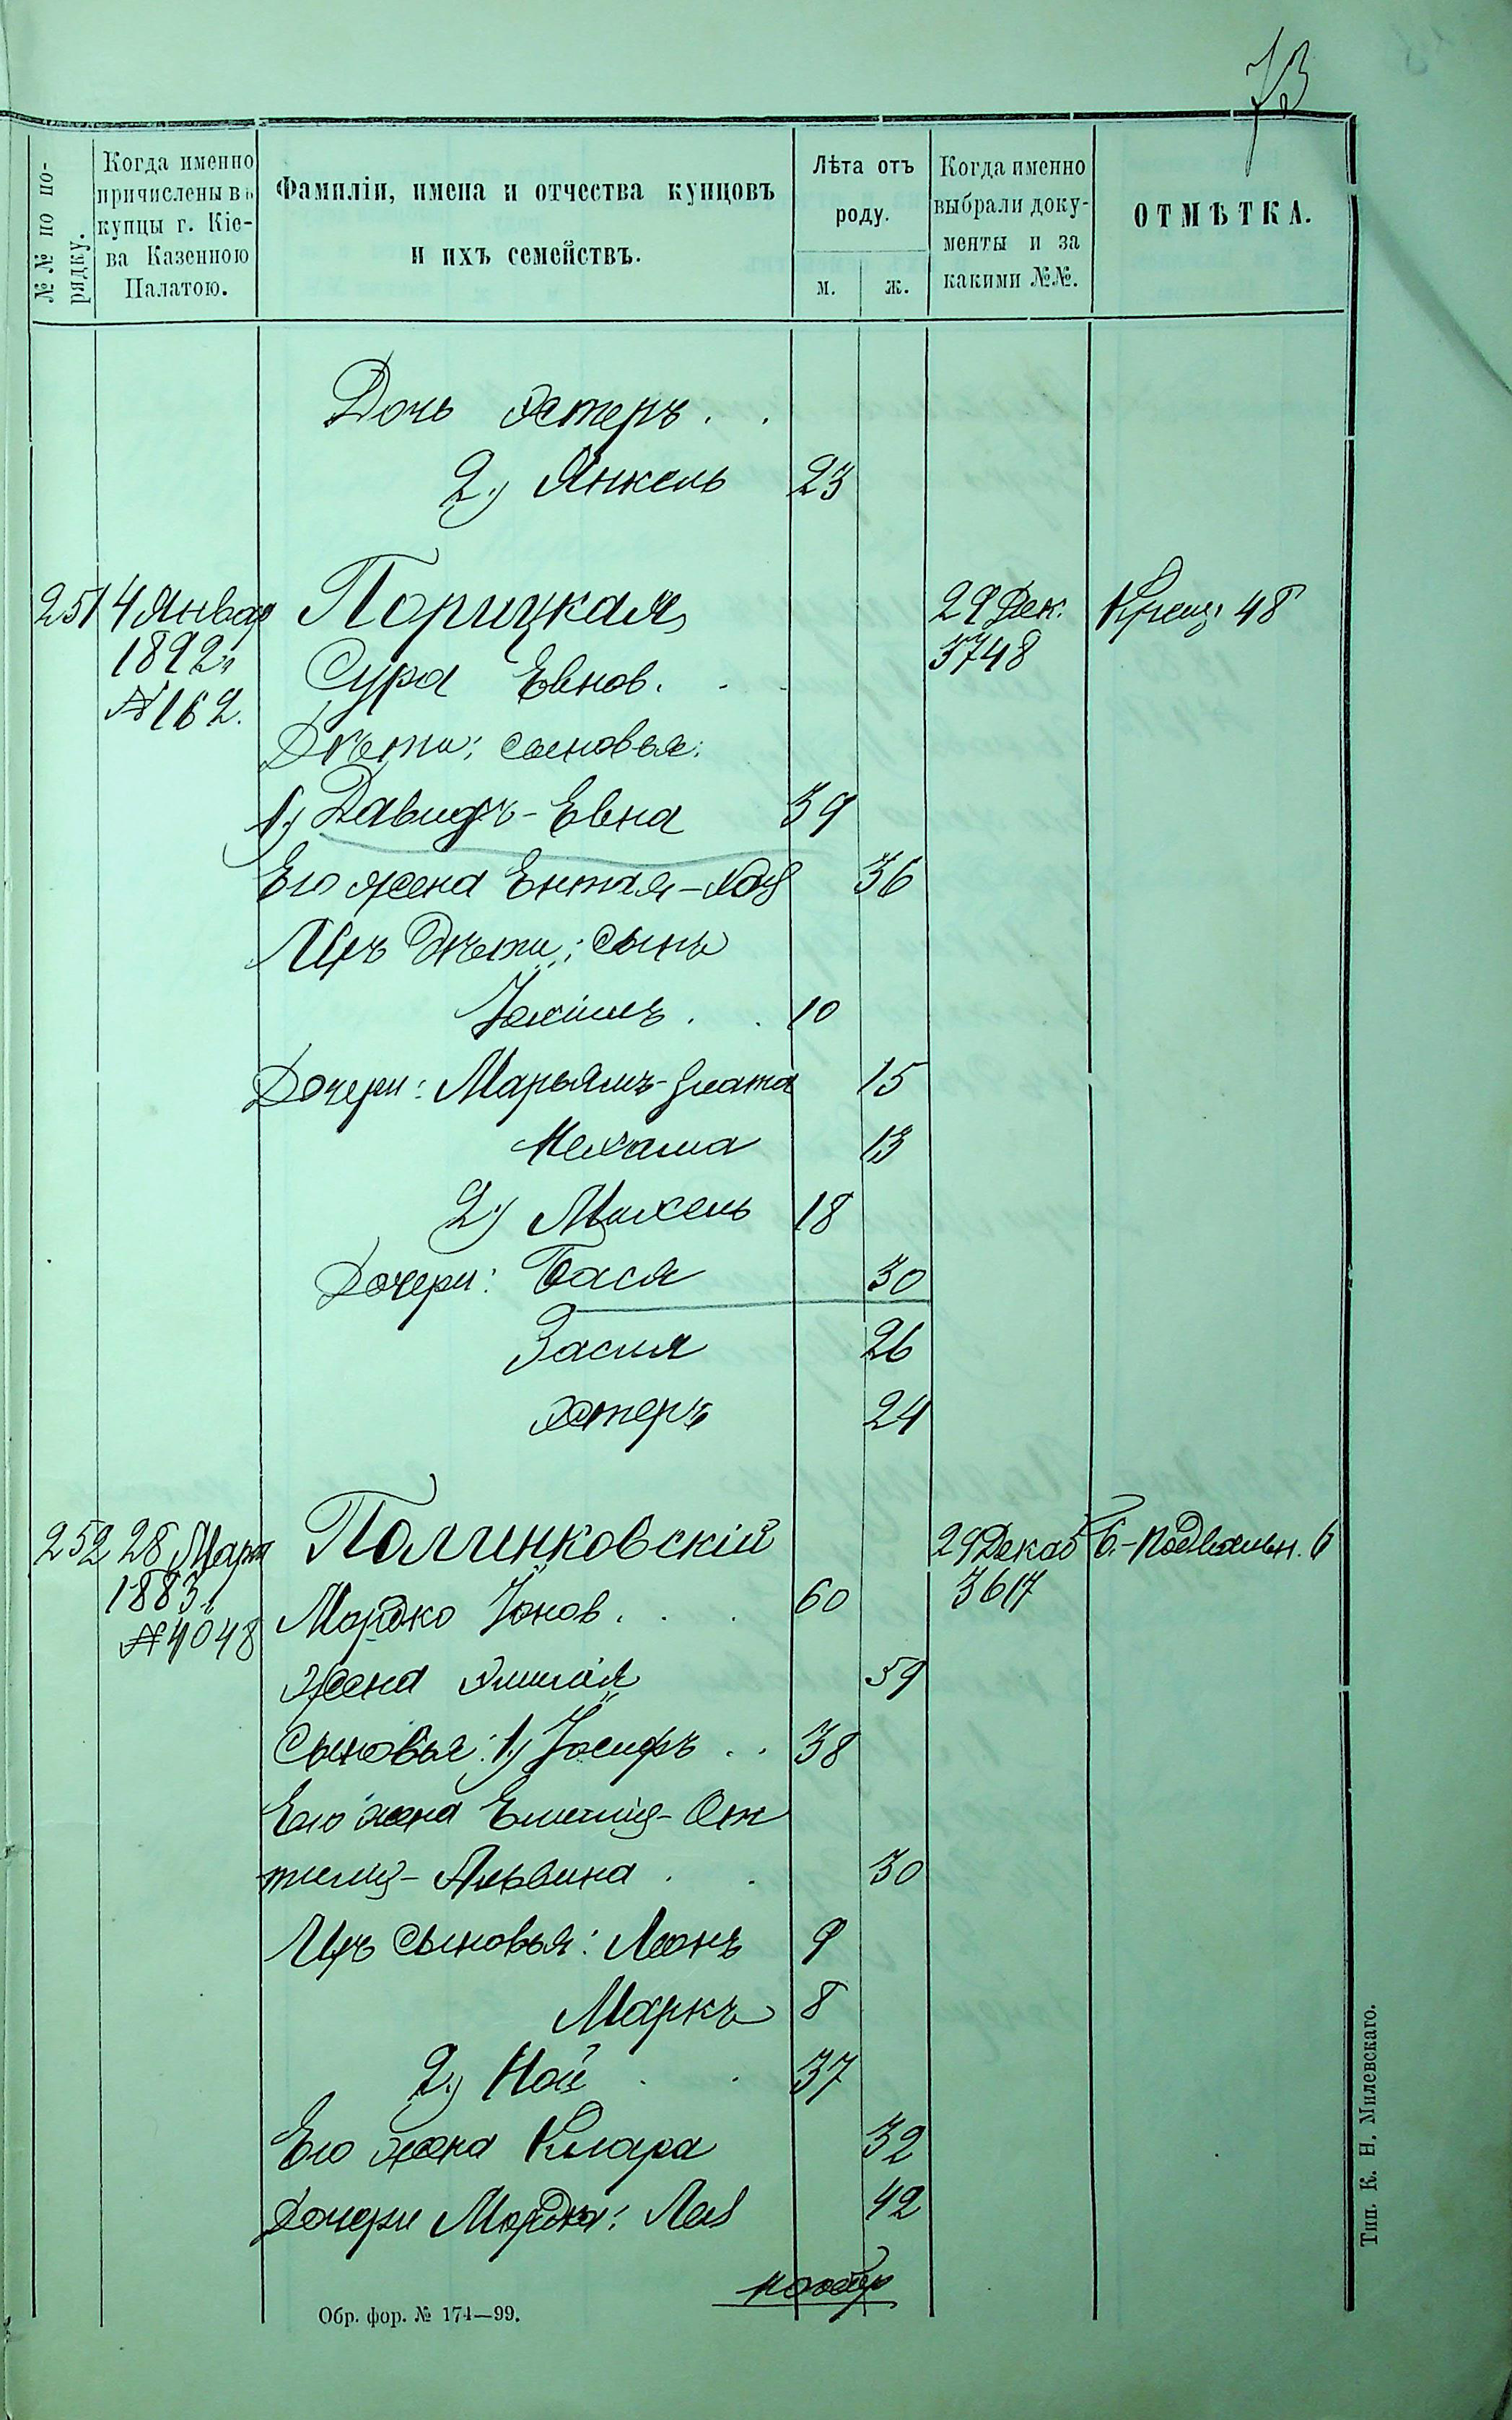 73
№№ по по-
рядку.
Когда именно
причислены въ
купцы г. Кіе-
ва Казенною
Палатою.
Фамиліи, имена и отчества купцовъ
и ихъ семействъ.
Лѣта отъ
роду.
м. ж.
Когда именно
выбрали доку-
менты и за
какими №№.
ОТМѢТКА.
Дочь Эстеръ . .
2) Янкель 23
251 4 Январ Порицкая 29 Дек. Крещ. 48
1892 г. Сура Евнов. . . 3748
№ 162.
Дѣти: сыновья:
1) Давидъ-Евна 39
Его жена Ентая-Хая 36
Ихъ дѣти: сынъ
Іоакимъ . . 10
Дочери: Марьямъ-Злата 15
Нехама 13
2) Михель 18
Дочери: Бася 30
Эстеръ 24
26
252 28 Март Полинковскій 29 Декаб Б.-Подвальн. 6
1883 г. Мордко Іонов. . . 60 3617
№ 4048
жена Эмилія 59
Сыновья: 1) Іосифъ . . 38
Его жена Емилія-От
тилія-Альвина . . 30
Ихъ сыновья: Леонъ 9
Маркъ 8
2) Ной . . 37
Его жена Клара 32
Дочери Мордка: Лея 42
Обр. фор. № 174—99.
Тип. К. Н. Милевскаго.